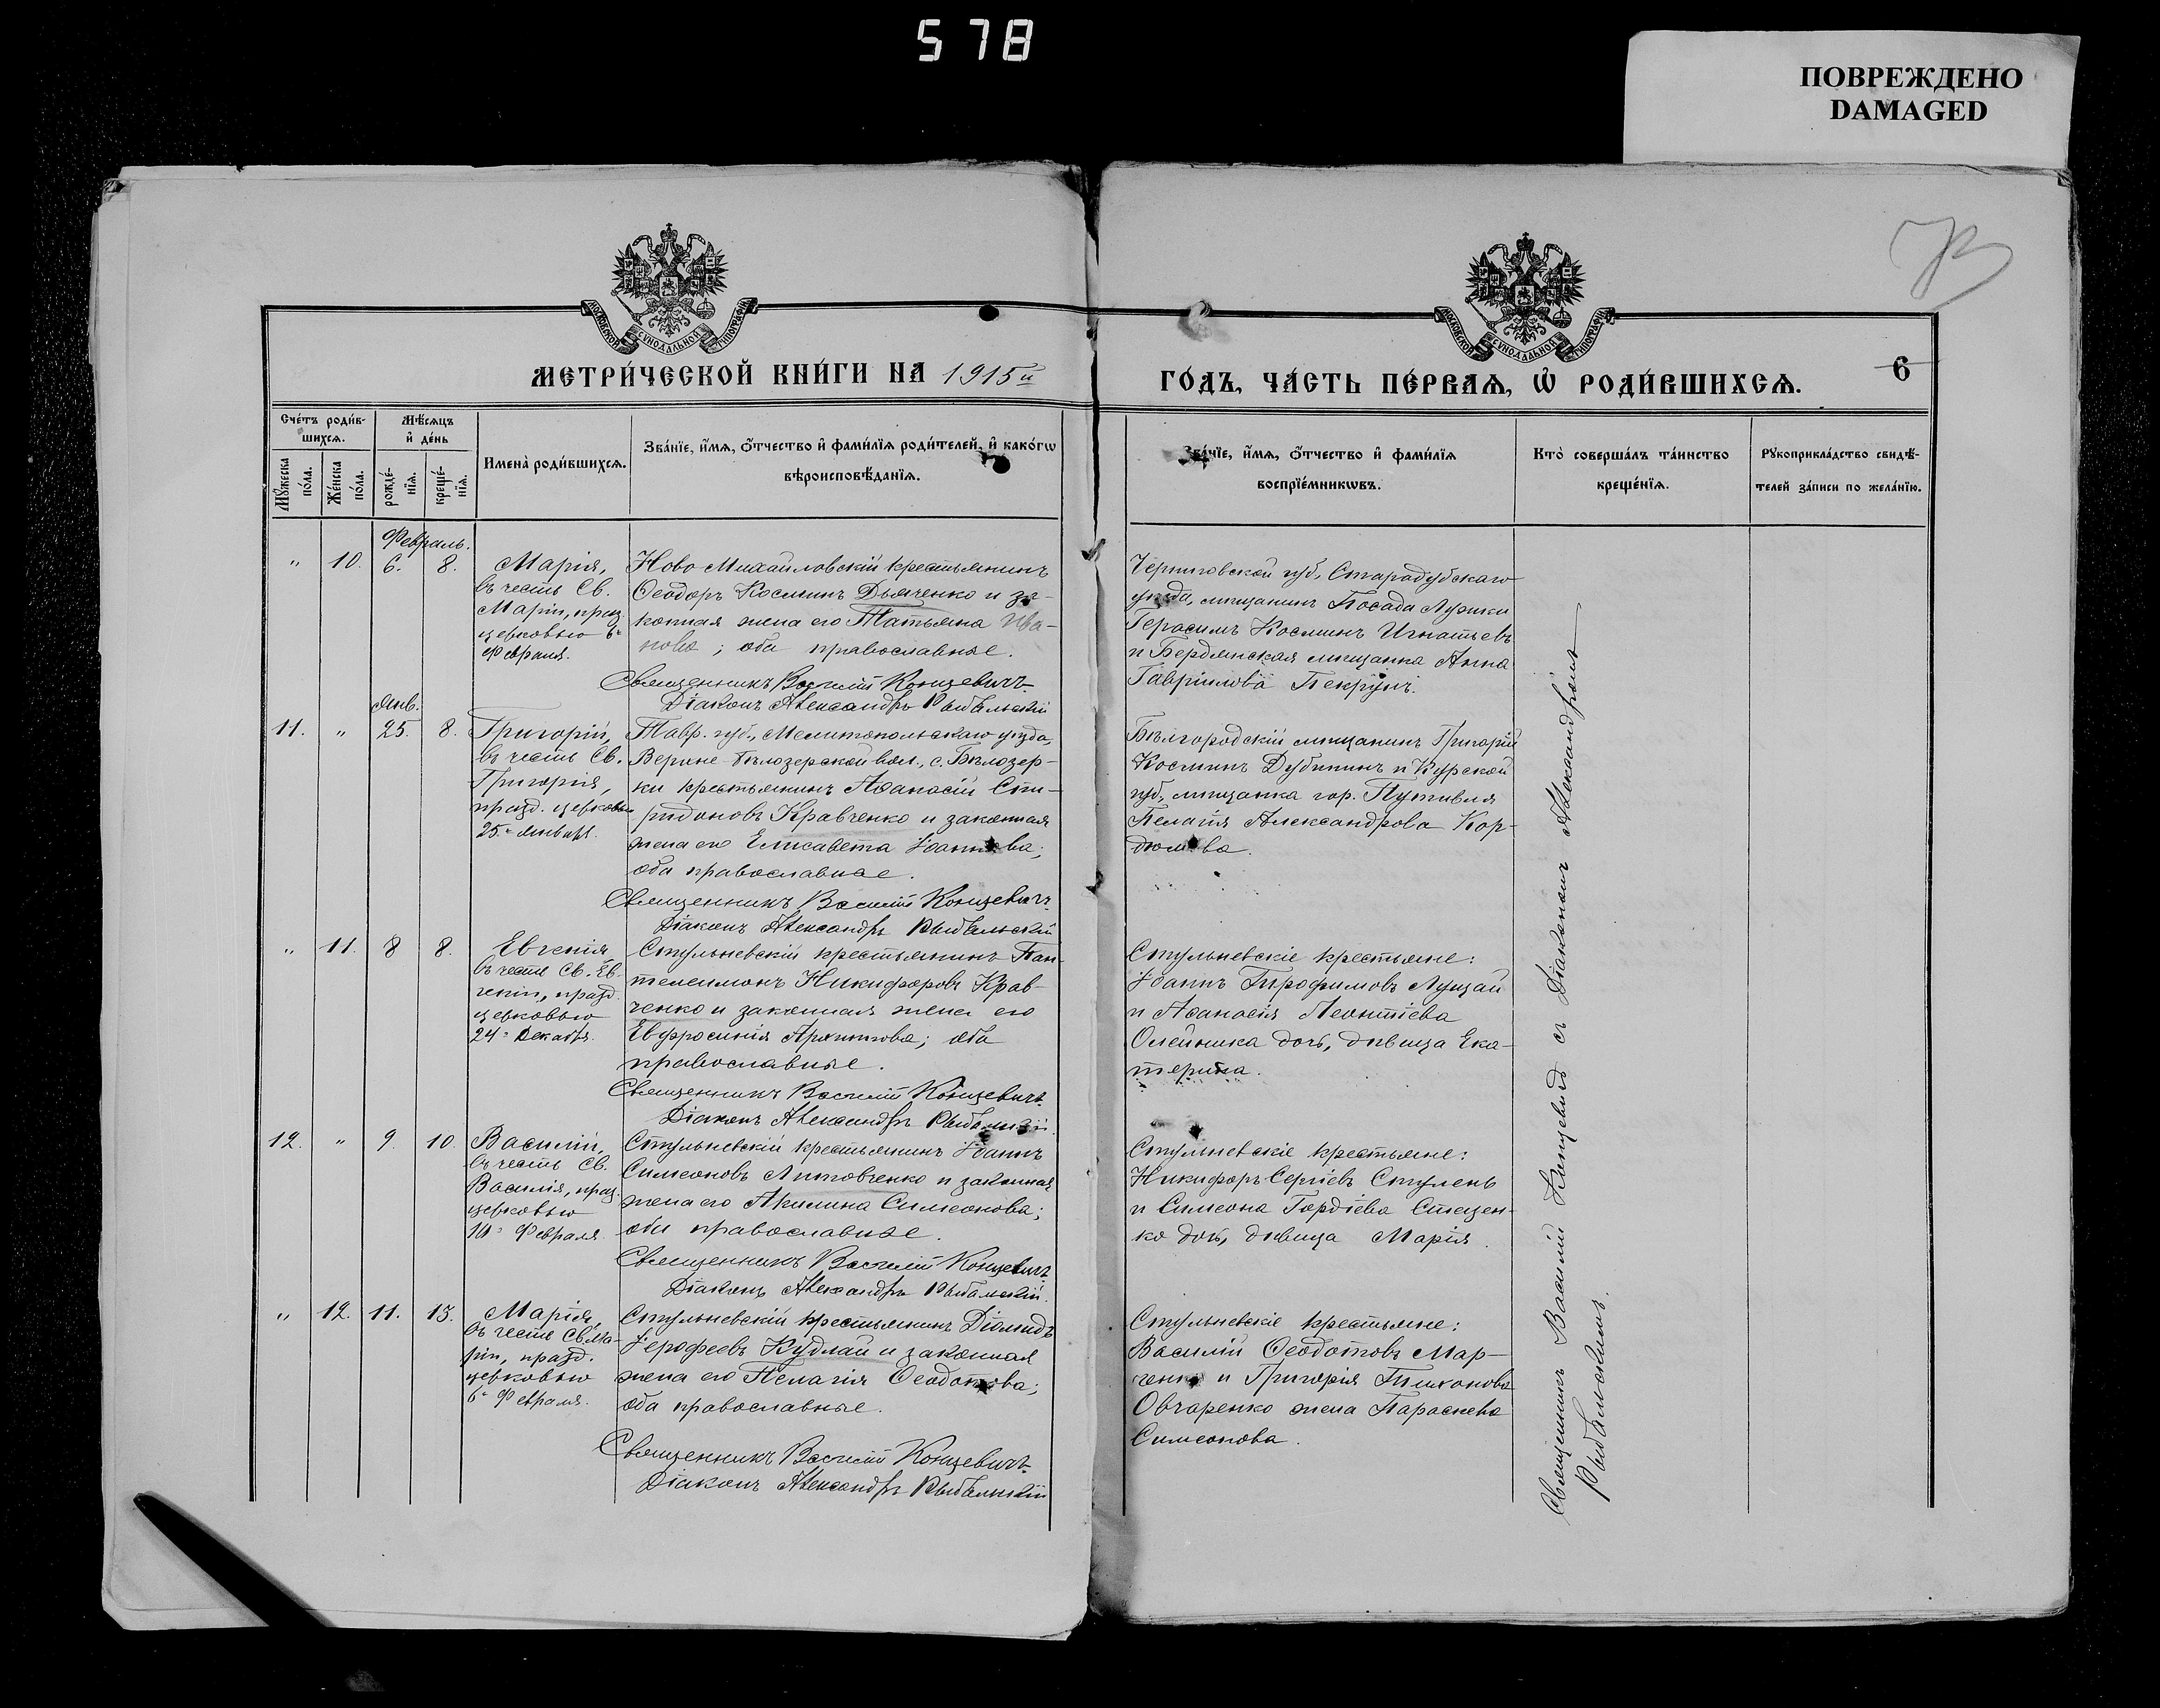 578
ПОВРЕЖДЕНО
DAMAGED
МОСКОВСКОЙ СѴНОДАЛЬНОЙ ТИПОГРАФІИ
МОСКОВСКОЙ СѴНОДАЛЬНОЙ ТИПОГРАФІИ
МЕТРИ́ЧЕСКОЙ КНИ́ГИ НА 1915й
ГО́ДЪ, ЧА́СТЬ ПЕ́РВАѦ, Ѽ РОДИ́ВШИХСѦ.
6
Сче́тъ роди́в-
шихсѧ.
Мѣ́сѧцъ
и҆ де́нь
Мꙋ́жеска
по́ла.
Же́нска
по́ла.
рожде́-
нїѧ.
креще́-
нїѧ.
Имена̀ роди́вшихсѧ.
Зва́нїе, и҆́мѧ, ѻ҆́тчество и҆ фами́лїѧ роди́телей, и҆ како́гѡ
вѣроисповѣ́данїѧ.
Зва́нїе, и҆́мѧ, ѻ҆́тчество и҆ фами́лїѧ
воспрїе́мникѡвъ.
Кто̀ соверша́лъ та́инство
креще́нїѧ.
Рꙋкоприкла́дство свидѣ́-
телей за́писи по жела́нїю.
Февраль.
" 10. 6. 8.
Марія,
въ честь Св.
Маріи, праз.
церковью 6го
Февраля.
Ново-Михайловскій крестьянинъ
Ѳеодоръ Космінъ Дьяченко и за-
конная жена его Татьяна Ива-
нова; оба православные.
Священникъ Василій Концевичъ.
Діаконъ Александръ Рыбальскій
Черниговской губ., Стародубскаго
уѣзда, мѣщанинъ Посада Лужки
Герасимъ Космінъ Игнатьевъ
и Бердянская мѣщанка Анна
Гавріилова Пекрунъ.
Янв.
11. " 25. 8.
Григорій,
въ честь Св.
Григорія,
празд. церковью
25го Января.
Тавр. губ., Мелитопольскаго уѣзда,
Верхне-Бѣлозерской вол., с. Бѣлозер-
ки крестьянинъ Аѳанасій Спи-
ридоновъ Кравченко и законная
жена его Елисавета Іоаннова;
оба православные.
Священникъ Василій Концевичъ
Діаконъ Александръ Рыбальскій
Бѣлгородскій мѣщанинъ Григорій
Космінъ Дубининъ и Курской
губ., мѣщанка гор. Путивля
Пелагія Александрова Кор-
дюкова.
" 11. 8 8.
Евгенія,
въ честь Св. Ев-
геніи, празд.
церковью
24го Декабря.
Стульневскій крестьянинъ Пан-
телеимонъ Никифоровъ Крав-
ченко и законная жена его
Евфросинія Архипова; оба
православные.
Священникъ Василій Концевичъ
Діаконъ Александръ Рыбальскій.
Стульневскіе крестьяне:
Іоаннъ Трофимовъ Луцай
и Аѳанасія Леонтіева
Олейника дочь, дѣвица Ека-
терина.
12. " 9. 10.
Василій,
въ честь Св.
Василія, праз.
церковью
10го Февраля.
Стульневскій крестьянинъ Іоаннъ
Симеоновъ Литовченко и законная
жена его Акилина Симеонова;
оба православные.
Священникъ Василій Концевичъ
Діаконъ Александръ Рыбальскій.
Стульневскіе крестьяне:
Никифоръ Сергіевъ Стулень
и Симеона Гордіева Стецен-
ко дочь, дѣвица Марія.
" 12. 11. 15.
Марія,
въ честь Св. Ма-
ріи, празд.
церковью
6го Февраля.
Стульневскій крестьянинъ Діомидъ
Іерофеевъ Кудлай и законная
жена его Пелагія Ѳеодотова;
оба православные.
Священникъ Василій Концевичъ.
Діаконъ Александръ Рыбальскій
Стульневскіе крестьяне:
Василій Ѳеодотовъ Мар-
ченко и Григорія Тихонова
Овчаренко жена Параскева
Симеонова.
Священникъ Василій Концевичъ съ Діакономъ Александромъ
Рыбальскимъ.